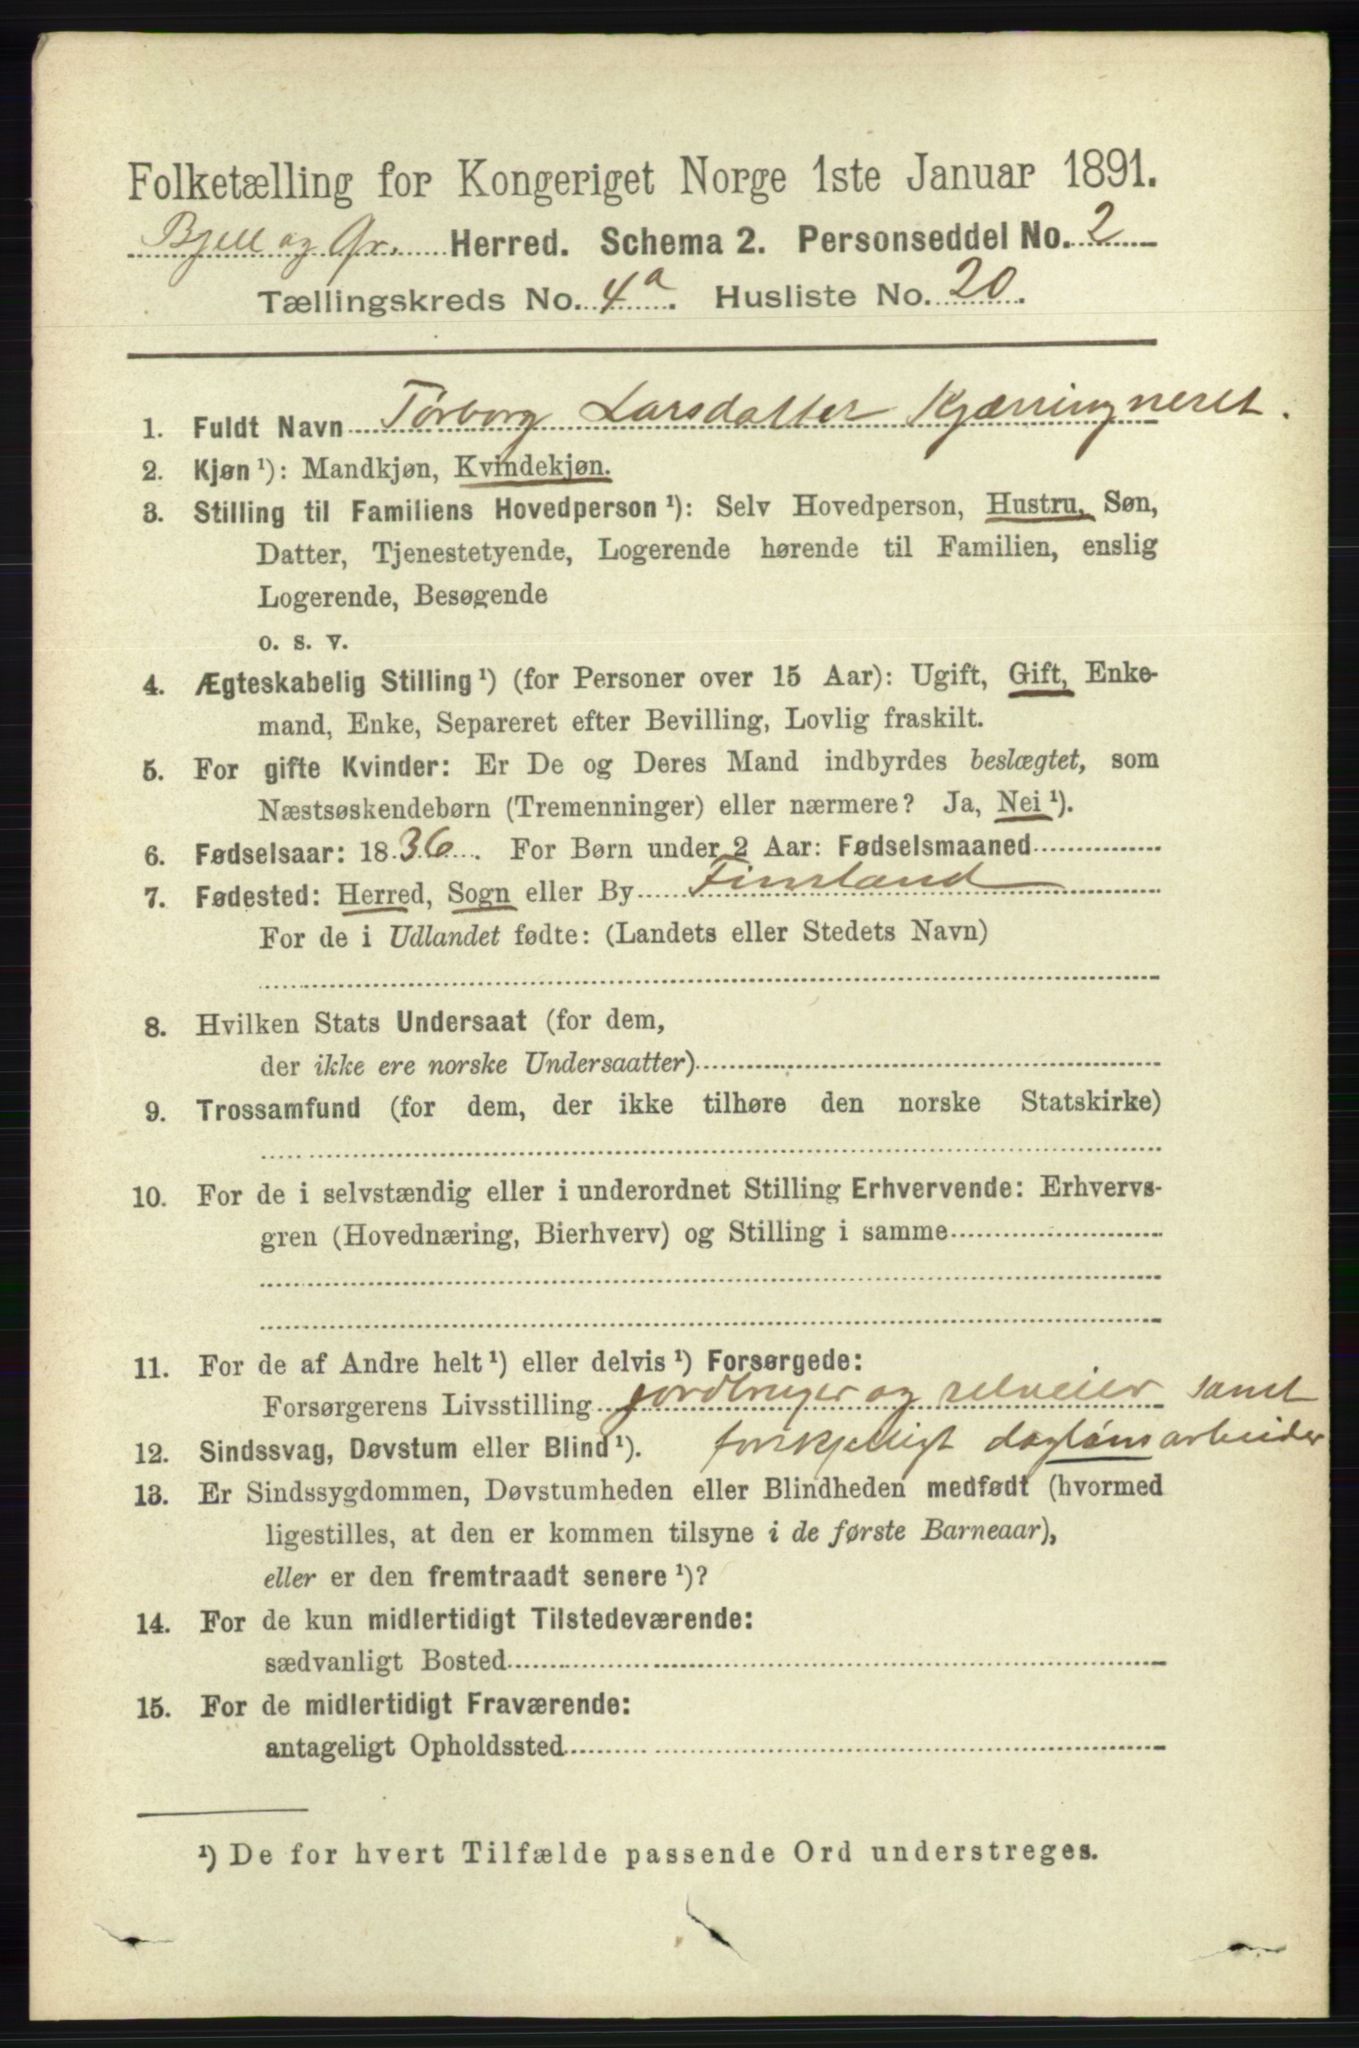 Folketælling for Kongeriget Norge 1ste Januar 1891.
Bjell og Gr. Herred. Schema 2. Personseddel No. 2
Tællingskreds No. 4a. Husliste No. 20.
1. Fuldt Navn Torborg Larsdatter Kjærringneset.
2. Kjøn¹): Mandkjøn, Kvindekjøn.
3. Stilling til Familiens Hovedperson¹): Selv Hovedperson, Hustru, Søn,
Datter, Tjenestetyende, Logerende hørende til Familien, enslig
Logerende, Besøgende
o. s. v.
4. Ægteskabelig Stilling¹) (for Personer over 15 Aar): Ugift, Gift, Enke-
mand, Enke, Separeret efter Bevilling, Lovlig fraskilt.
5. For gifte Kvinder: Er De og Deres Mand indbyrdes beslægtet, som
Næstsøskendebørn (Tremenninger) eller nærmere? Ja, Nei¹).
6. Fødselsaar: 1836. For Børn under 2 Aar: Fødselsmaaned
7. Fødested: Herred, Sogn eller By Finsland
For de i Udlandet fødte: (Landets eller Stedets Navn)
8. Hvilken Stats Undersaat (for dem,
der ikke ere norske Undersaatter)
9. Trossamfund (for dem, der ikke tilhøre den norske Statskirke)
10. For de i selvstændig eller i underordnet Stilling Erhvervende: Erhvervs-
gren (Hovednæring, Bierhverv) og Stilling i samme
11. For de af Andre helt¹) eller delvis¹) Forsørgede:
Forsørgerens Livsstilling jordbruger og selveier samt
12. Sindssvag, Døvstum eller Blind¹). forskjelligt dagløns arbeider
13. Er Sindssygdommen, Døvstumheden eller Blindheden medfødt (hvormed
ligestilles, at den er kommen tilsyne i de første Barneaar),
eller er den fremtraadt senere¹)?
14. For de kun midlertidigt Tilstedeværende:
sædvanligt Bosted
15. For de midlertidigt Fraværende:
antageligt Opholdssted
¹) De for hvert Tilfælde passende Ord understreges.